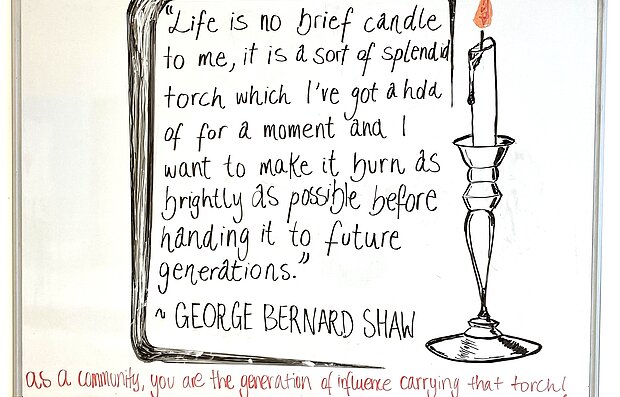 "Life is no brief candle
to me, it is a sort of splendid
torch which I've got a hold
of for a moment and I
want to make it burn as
brightly as possible before
handing it to future
generations."
~ GEORGE BERNARD SHAW
as a community, you are the generation of influence carrying that torch!